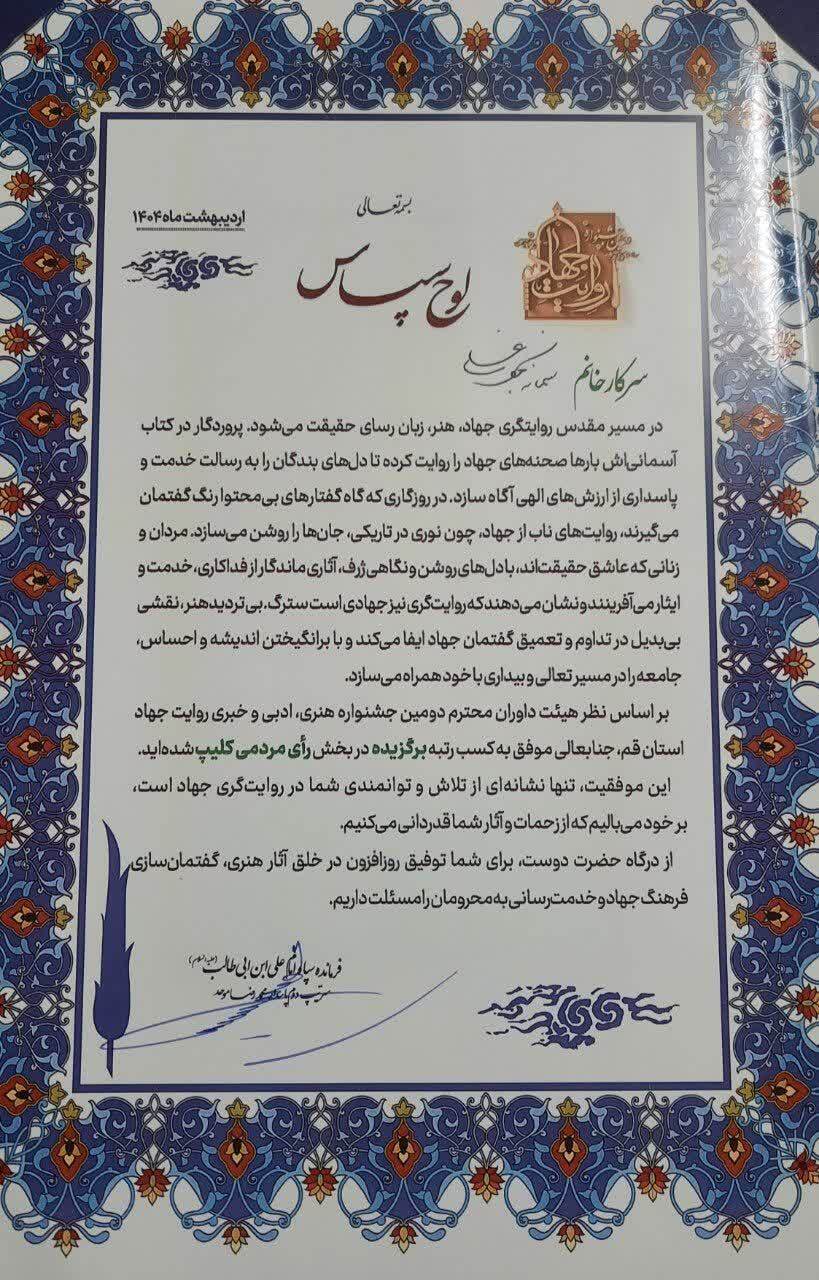 بسمه تعالی
اردیبهشت ماه ۱۴۰۴
روایت جهاد
لوح سپاس
سرکار خانم
در مسیر مقدس روایتگری جهاد، هنر، زبان رسای حقیقت می‌شود. پروردگار در کتاب
آسمانی‌اش بارها صحنه‌های جهاد را روایت کرده تا دل‌های بندگان را به رسالت خدمت و
پاسداری از ارزش‌های الهی آگاه سازد. در روزگاری که گاه گفتارهای بی‌محتوا رنگ گفتمان
می‌گیرند، روایت‌های ناب از جهاد، چون نوری در تاریکی، جان‌ها را روشن می‌سازد. مردان و
زنانی که عاشق حقیقت‌اند، با دل‌های روشن و نگاهی ژرف، آثاری ماندگار از فداکاری، خدمت و
ایثار می‌آفرینند و نشان می‌دهند که روایت‌گری نیز جهادی است سترگ. بی‌تردید هنر، نقشی
بی‌بدیل در تداوم و تعمیق گفتمان جهاد ایفا می‌کند و با برانگیختن اندیشه و احساس،
جامعه را در مسیر تعالی و بیداری با خود همراه می‌سازد.
بر اساس نظر هیئت داوران محترم دومین جشنواره هنری، ادبی و خبری روایت جهاد
استان قم، جنابعالی موفق به کسب رتبه برگزیده در بخش رأی مردمی کلیپ شده‌اید.
این موفقیت، تنها نشانه‌ای از تلاش و توانمندی شما در روایت‌گری جهاد است،
بر خود می‌بالیم که از زحمات و آثار شما قدردانی می‌کنیم.
از درگاه حضرت دوست، برای شما توفیق روزافزون در خلق آثار هنری، گفتمان‌سازی
فرهنگ جهاد و خدمت‌رسانی به محرومان را مسئلت داریم.
فرمانده سپاه امام علی ابن ابی طالب (علیه السلام)
سرتیپ دوم پاسدار محمدرضا موحد